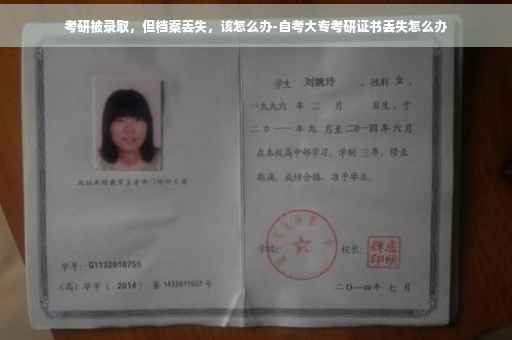 考研被录取，但档案丢失，该怎么办-自考大专考研证书丢失怎么办
学生 刘婉玲 ，性别 女 ，
一九九六 年 二 月 日生，于
二〇一一年九 月至二〇一四年六月
在本校高中部学习，学制 三年，修业
期满，成绩合格，准予毕业。
学校： 校长：
学号： G1132010755
（高）毕字（ 2014 ）第 1432011007 号
二〇一四年 七 月